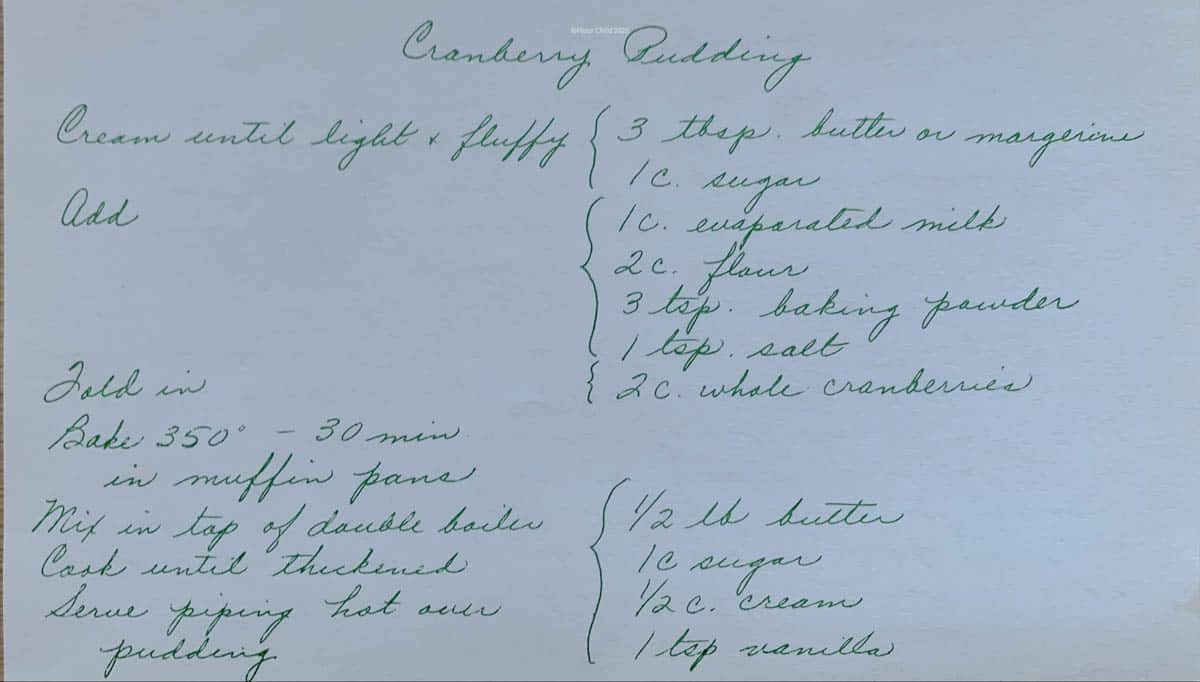 ©Hour Child 2025
Cranberry Pudding
Cream until light & fluffy { 3 tbsp. butter or margerine
1c. sugar
Add { 1c. evaporated milk
2c. flour
3 tsp. baking powder
1 tsp. salt
Fold in { 2c. whole cranberries
Bake 350° - 30 min
in muffin pans
Mix in top of double boiler { 1/2 lb butter
Cook until thickened 1c sugar
Serve piping hot over 1/2 c. cream
pudding 1 tsp vanilla